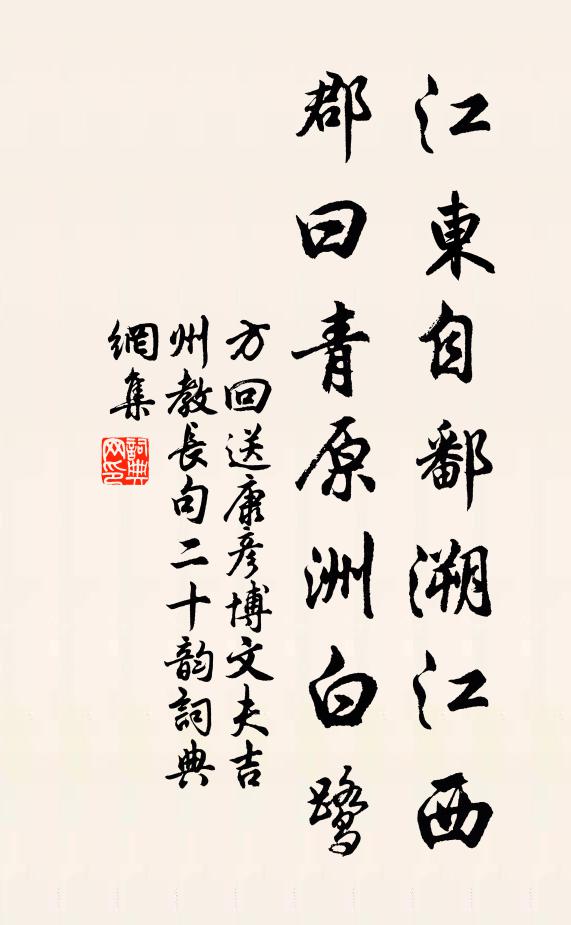 江東自鄱溯江西
郡曰青原洲白鷺
方回送康彥博文夫吉
州教長句二十韵詞典
網集
詞典網印